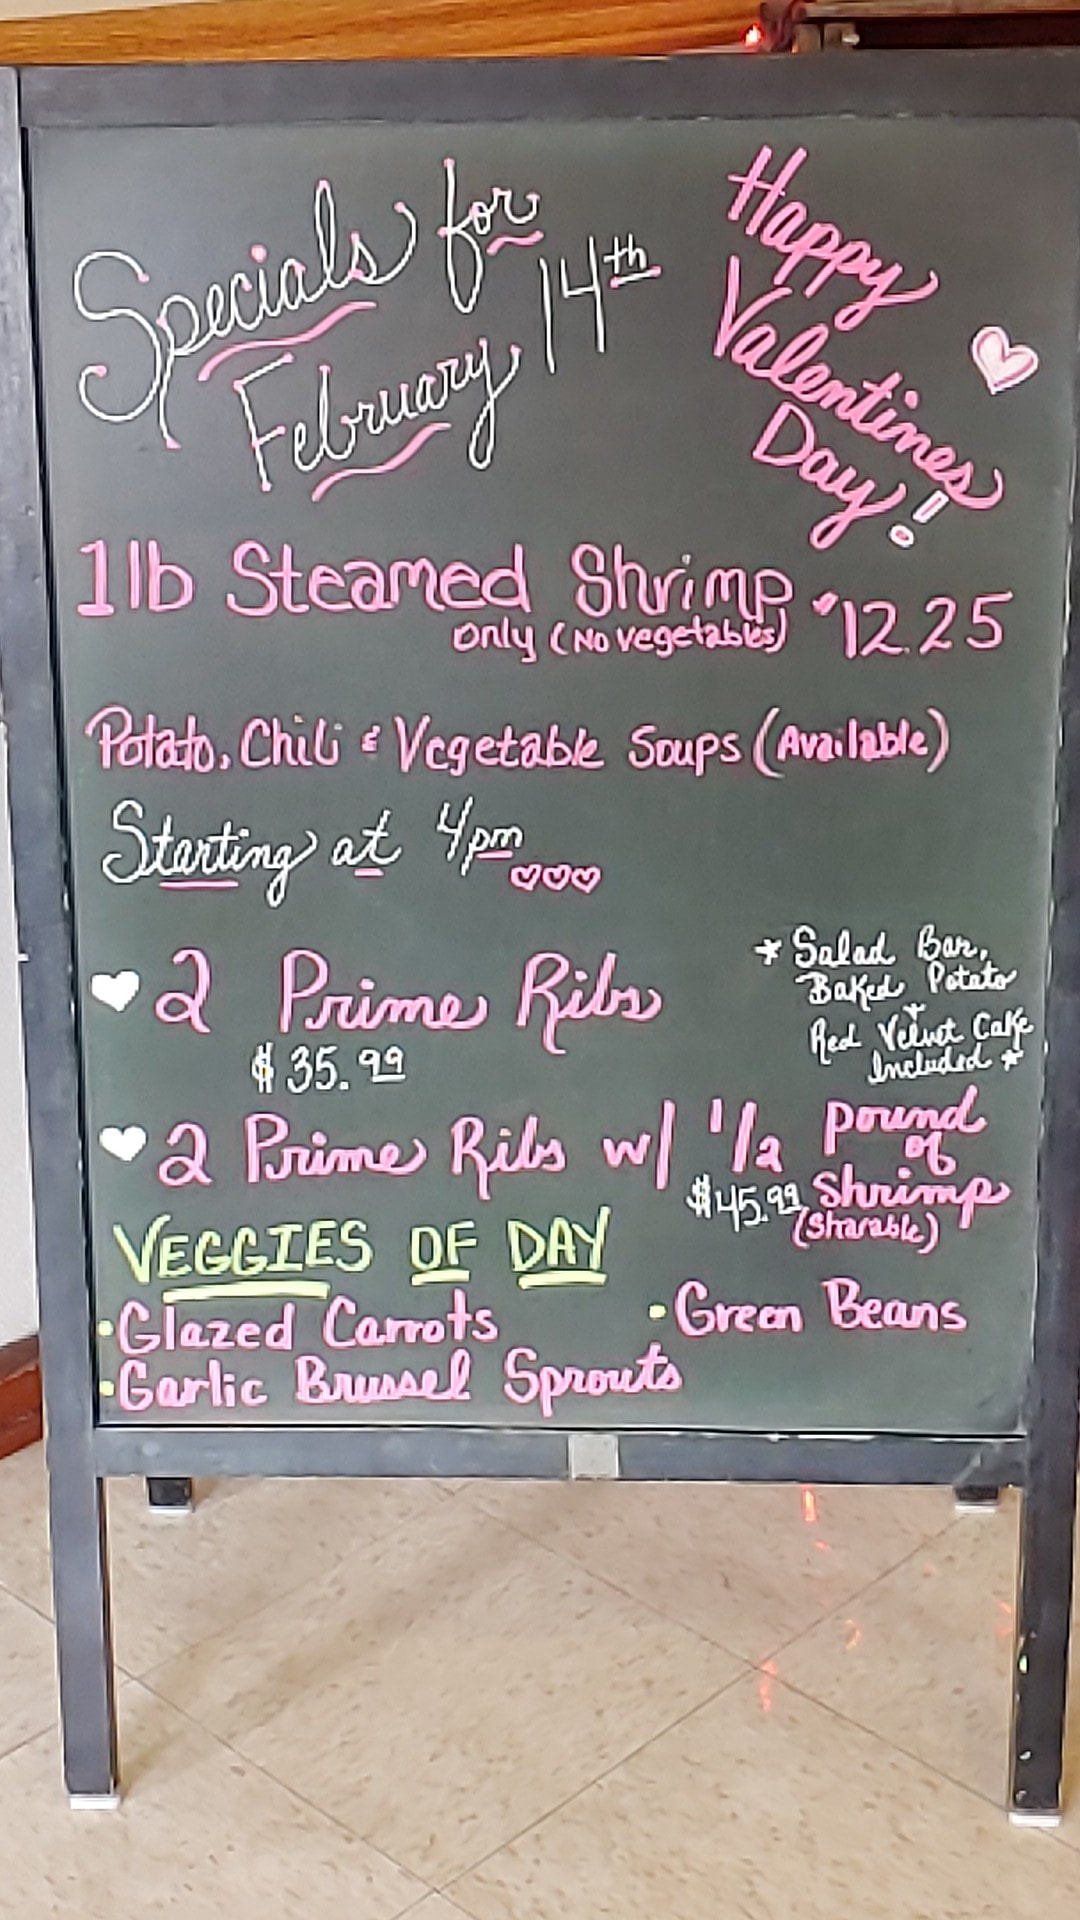 Specials for
February 14th
Happy
Valentines
Day!
1lb Steamed Shrimp $12.25
Only (No vegetables)
Potato, Chili & Vegetable Soups (Available)
Starting at 4pm
2 Prime Ribs
$35.99
* Salad Bar,
Baked Potato
+
Red Velvet Cake
Included *
2 Prime Ribs w/ 1/2 pound
of
shrimp
$45.99
(Sharable)
VEGGIES OF DAY
• Glazed Carrots
• Green Beans
• Garlic Brussel Sprouts